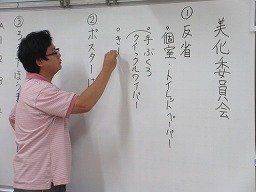 美化委員会
① 反省
・個室・トイレットペーパー
・手ぶくろ
クイックルワイパー
・き
② ポスターは
③